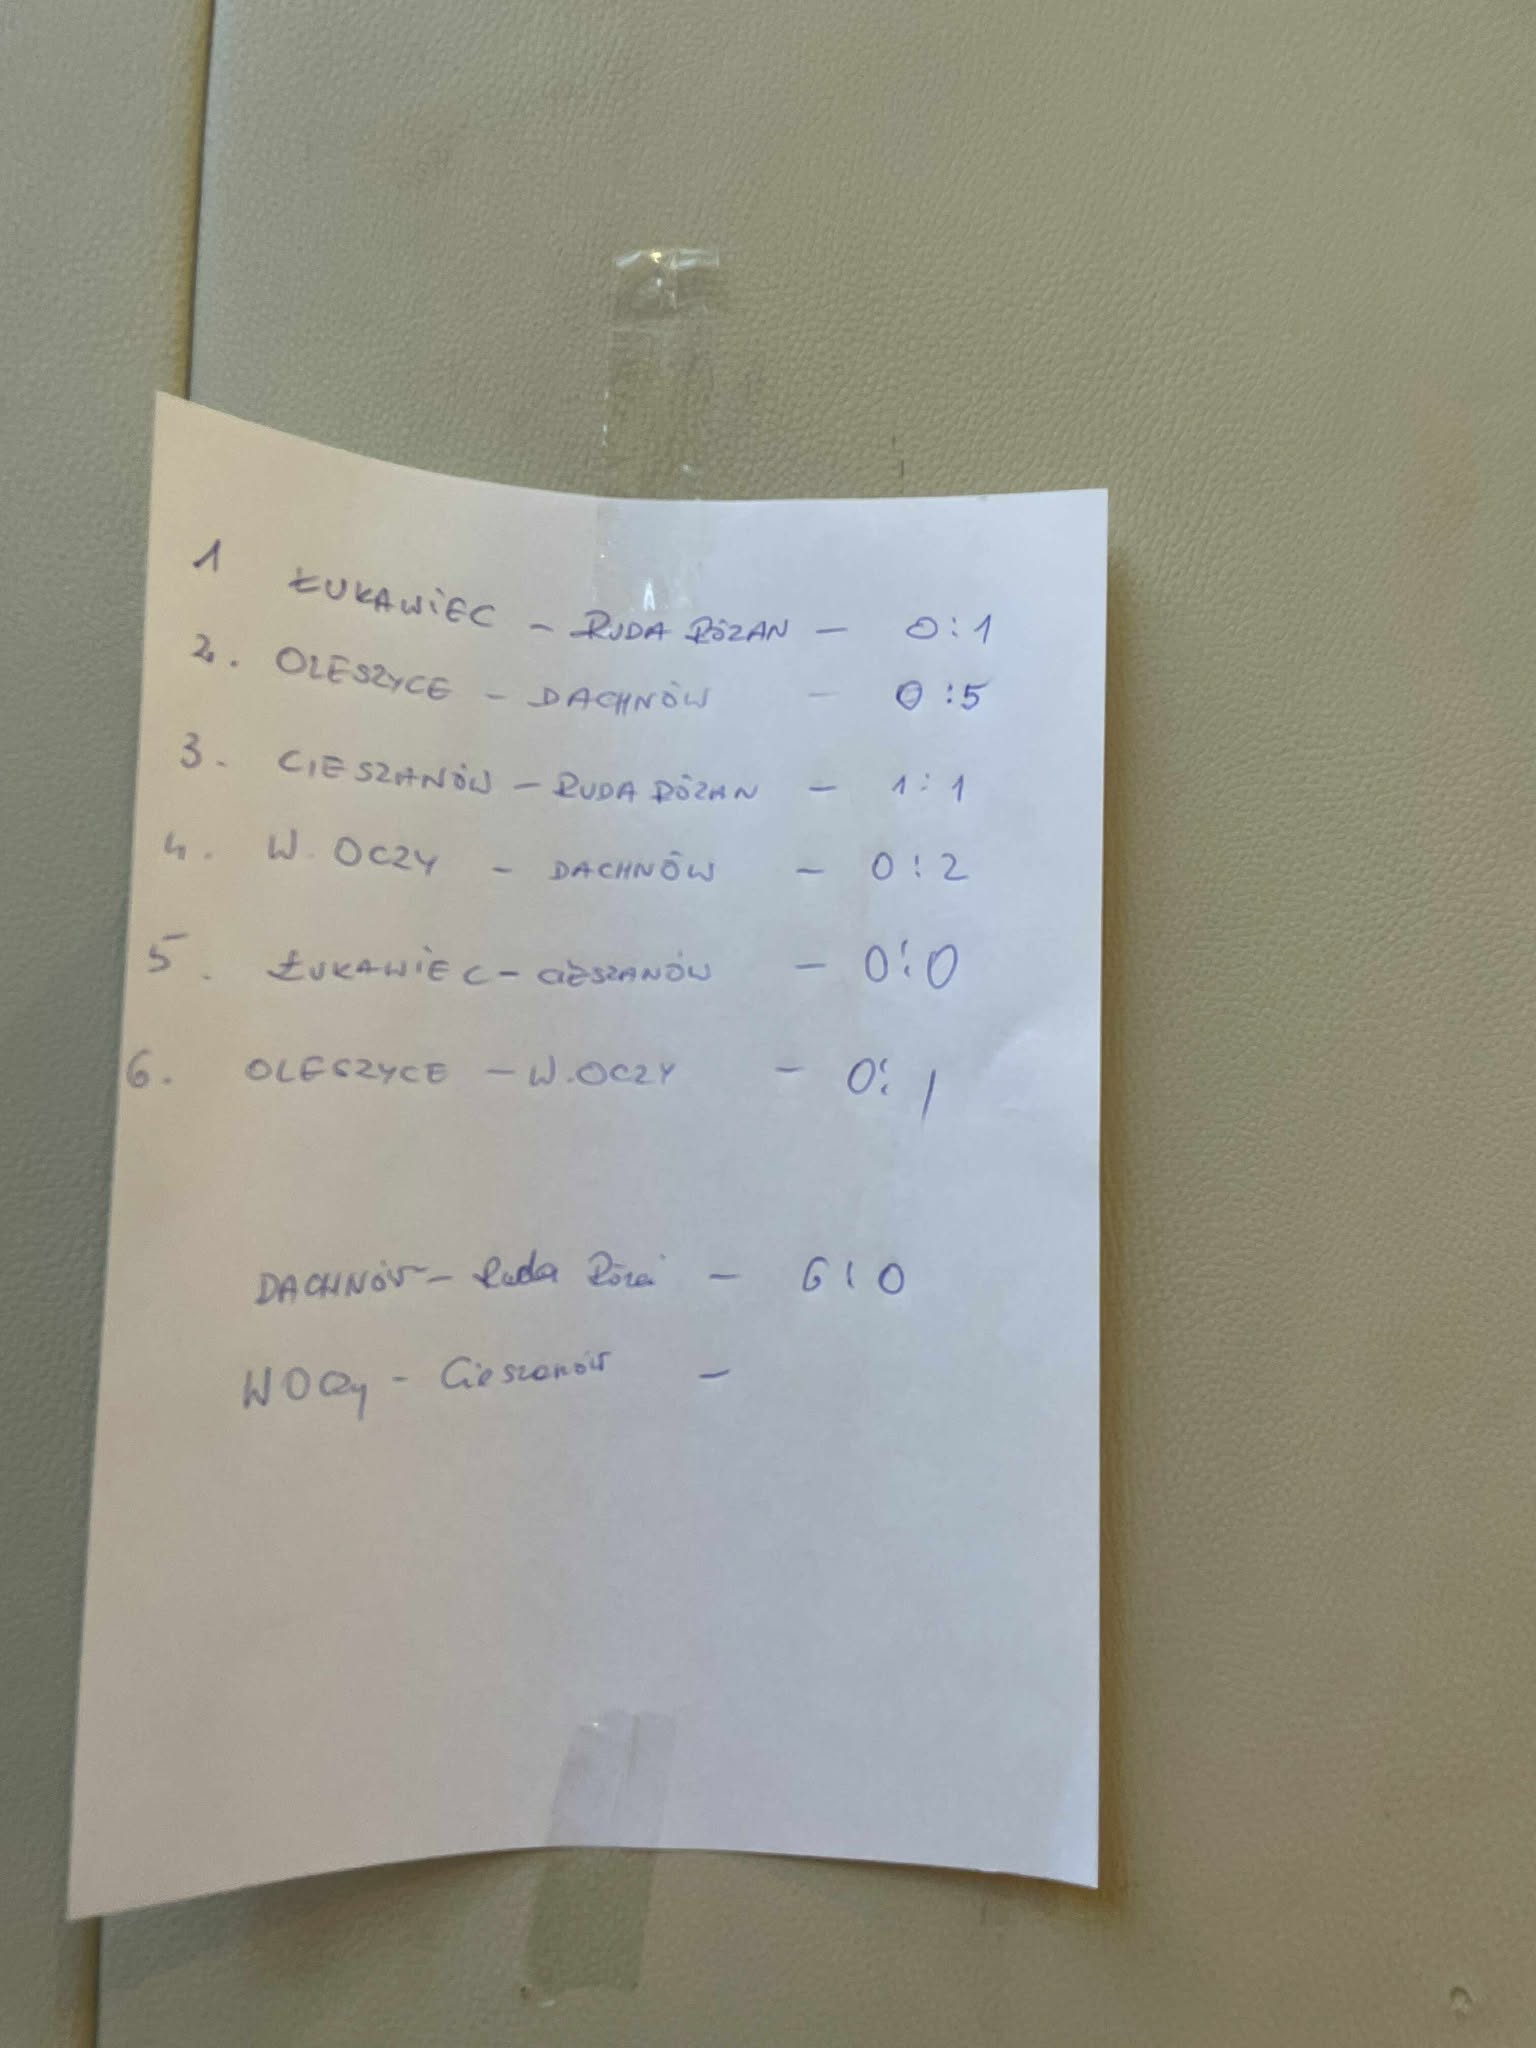 1 ŁUKAWIEC - RUDA RÓŻAN - 0:1
2. OLESZYCE - DACHNÓW - 0:5
3. CIESZANÓW - RUDA RÓŻAN - 1:1
4. W. OCZY - DACHNÓW - 0:2
5. ŁUKAWIEC - CIESZANÓW - 0:0
6. OLESZYCE - W. OCZY - 0:1
DACHNÓW - Ruda - 6:0
W OCzy - Cieszanów -